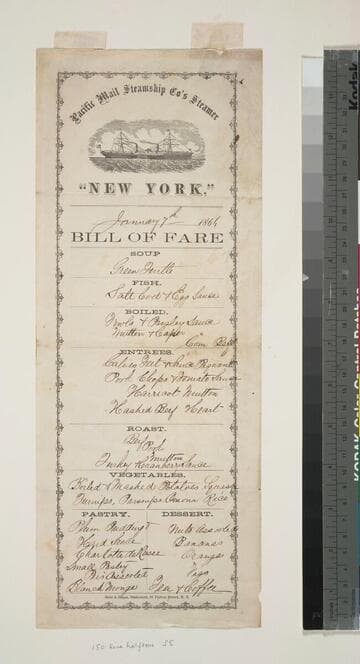 Pacific Mail Steamship Co's Steamer
"NEW YORK,"
January 7th 1866
BILL OF FARE
SOUP
Green Turtle
FISH.
Salt Cod & Egg Sauce
BOILED.
Fowls & Parsley Sauce
Mutton & Caper
Corn Beef
ENTREES.
Calves Feet & Sauce Piquant
Pork Chops & Tomato Sauce
Harricot Mutton
Hashed Beef Heart
ROAST.
Beef
Pork
Mutton
Turkey & Cranberry Sauce
VEGETABLES.
Boiled & Mashed Potatoes
Turnips, Parsnips Rice
PASTRY.
Plum Pudding
Hard Sauce
Charlotte de Russe
Small Pastry
Pies Assorted
Blanch Monge
DESSERT.
Nuts Assorted
Bananas
Oranges
Figs
Tea & Coffee
150
Kodak